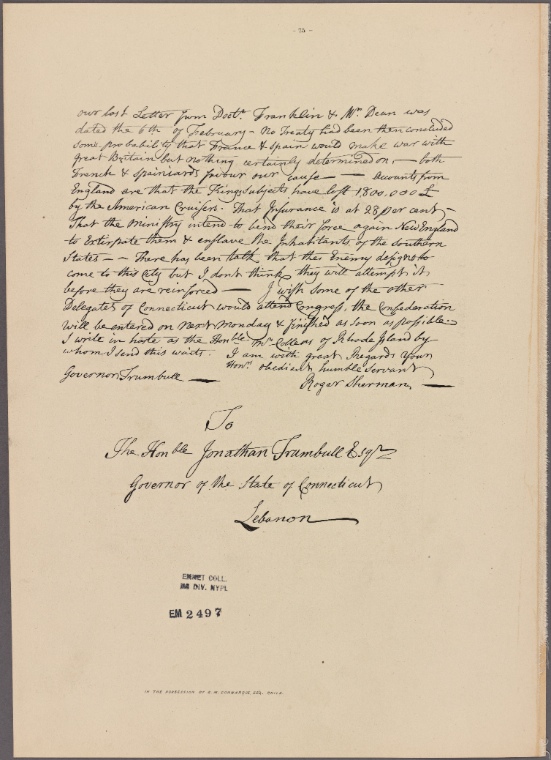 - 35 -
our last Letter from Doctr. Franklin & Mr. Dean was
dated the 6th of February - No Treaty had been then concluded
some probability that France & Spain would make war with
great Britain but nothing certainly determined on, - both
French & Spaniards favour our cause - Accounts from
England are that the Kings Subjects have lost 1800.000 £
by the American Cruisers. That Insurance is at 28 per cent, -
That the Ministry intend to bend their force again New England
to Extirpate them & enslave the Inhabitants of the Southern
States - - There has been talk that the Enemy designs to
come to this City but I dont think they will attempt it
before they are reinforced - I wish some of the other
Delegates of Connecticut would attend Congress, the Confederation
will be entered on next Monday & finished as soon as possible -
I write in haste as the Honble Mr. Collens of Rhode Island by
whom I send this waits. I am with great Regards Your
Honrs. obedient humble Servant
Governor Trumbull - Roger Sherman -
To
The Honble Jonathan Trumbull Esqr
Governor of the State of Connecticut
Lebanon
EMMET COLL.
MS DIV. NYPL
EM 2497
IN THE POSSESSION OF ESQ. PHILA.